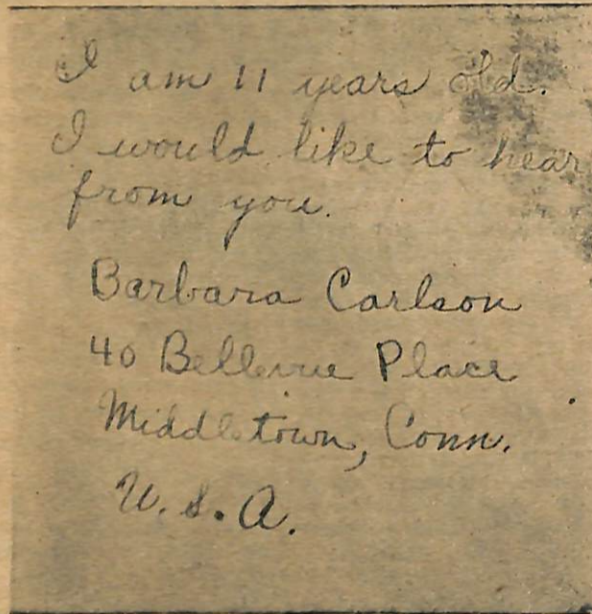 I am 11 years old.
I would like to hear
from you.
Barbara Carlson
40 Bellevue Place
Middletown, Conn.
U.S.A.